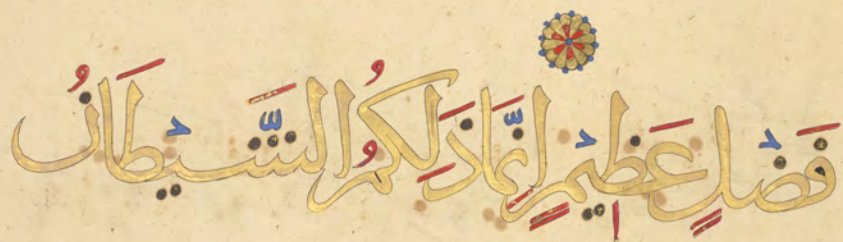 فَضْلٍ عَظِيمٍ إِنَّمَا ذَلِكُمُ الشَّيْطَانُ